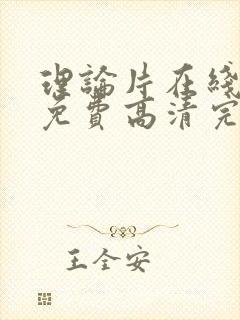 理論片在綫
免費高清完
王全安